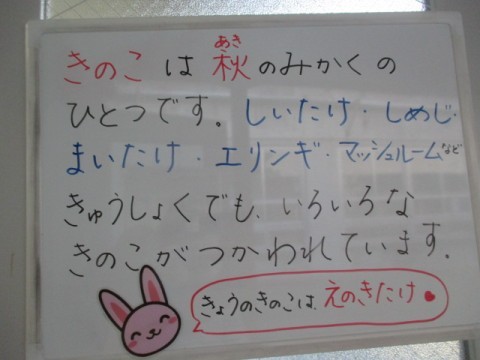 きのこは秋のみかくの
ひとつです。しいたけ・しめじ・
まいたけ・エリンギ・マッシュルームなど
きゅうしょくでも、いろいろな
きのこがつかわれています。
きょうのきのこは、えのきたけ